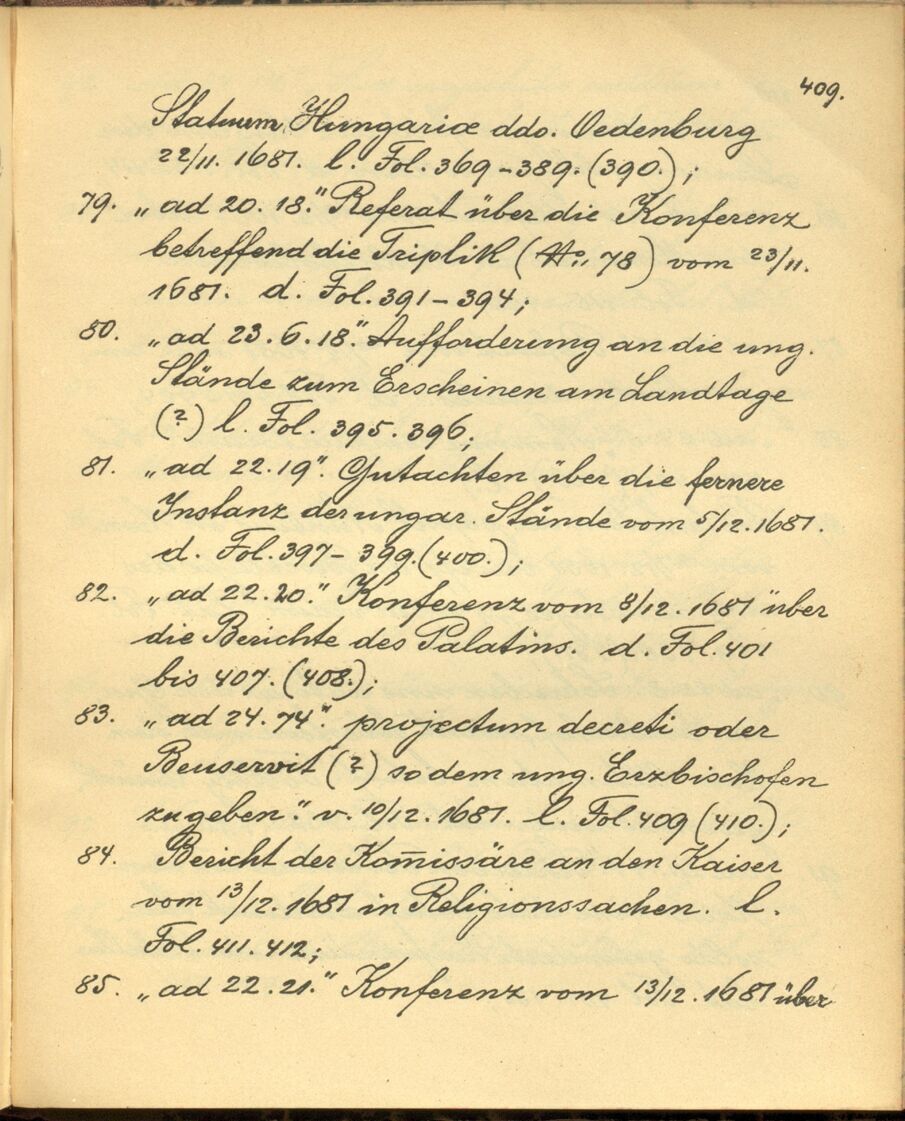 409.
Statuum Hungariæ ddo. Oedenburg
22/11. 1681. l. Fol. 369-389. (390.);
79. „ad 20. 18." Referat über die Konferenz
betreffend die Triplik (No. 78) vom 23/11.
1681. d. Fol. 391-394;
80. „ad 23. 6. 18." Aufforderung an die ung.
Stände zum Erscheinen am Landtage
(?) l. Fol. 395. 396;
81. „ad 22. 19". Gutachten über die fernere
Instanz der ungar. Stände vom 5/12. 1681.
d. Fol. 397- 399. (400.);
82. „ad 22. 20." Konferenz vom 8/12. 1681 über
die Berichte des Palatins. d. Fol. 401
bis 407. (408.);
83. „ad 24. 74". projectum decreti oder
Beuservit (?) so dem ung. Erzbischofen
zu geben". v. 10/12. 1681. l. Fol. 409 (410.);
84. Bericht der Kom̅issäre an den Kaiser
vom 13/12. 1681 in Religionssachen. l.
Fol. 411. 412;
85. „ad 22. 21." Konferenz vom 13/12. 1681 über